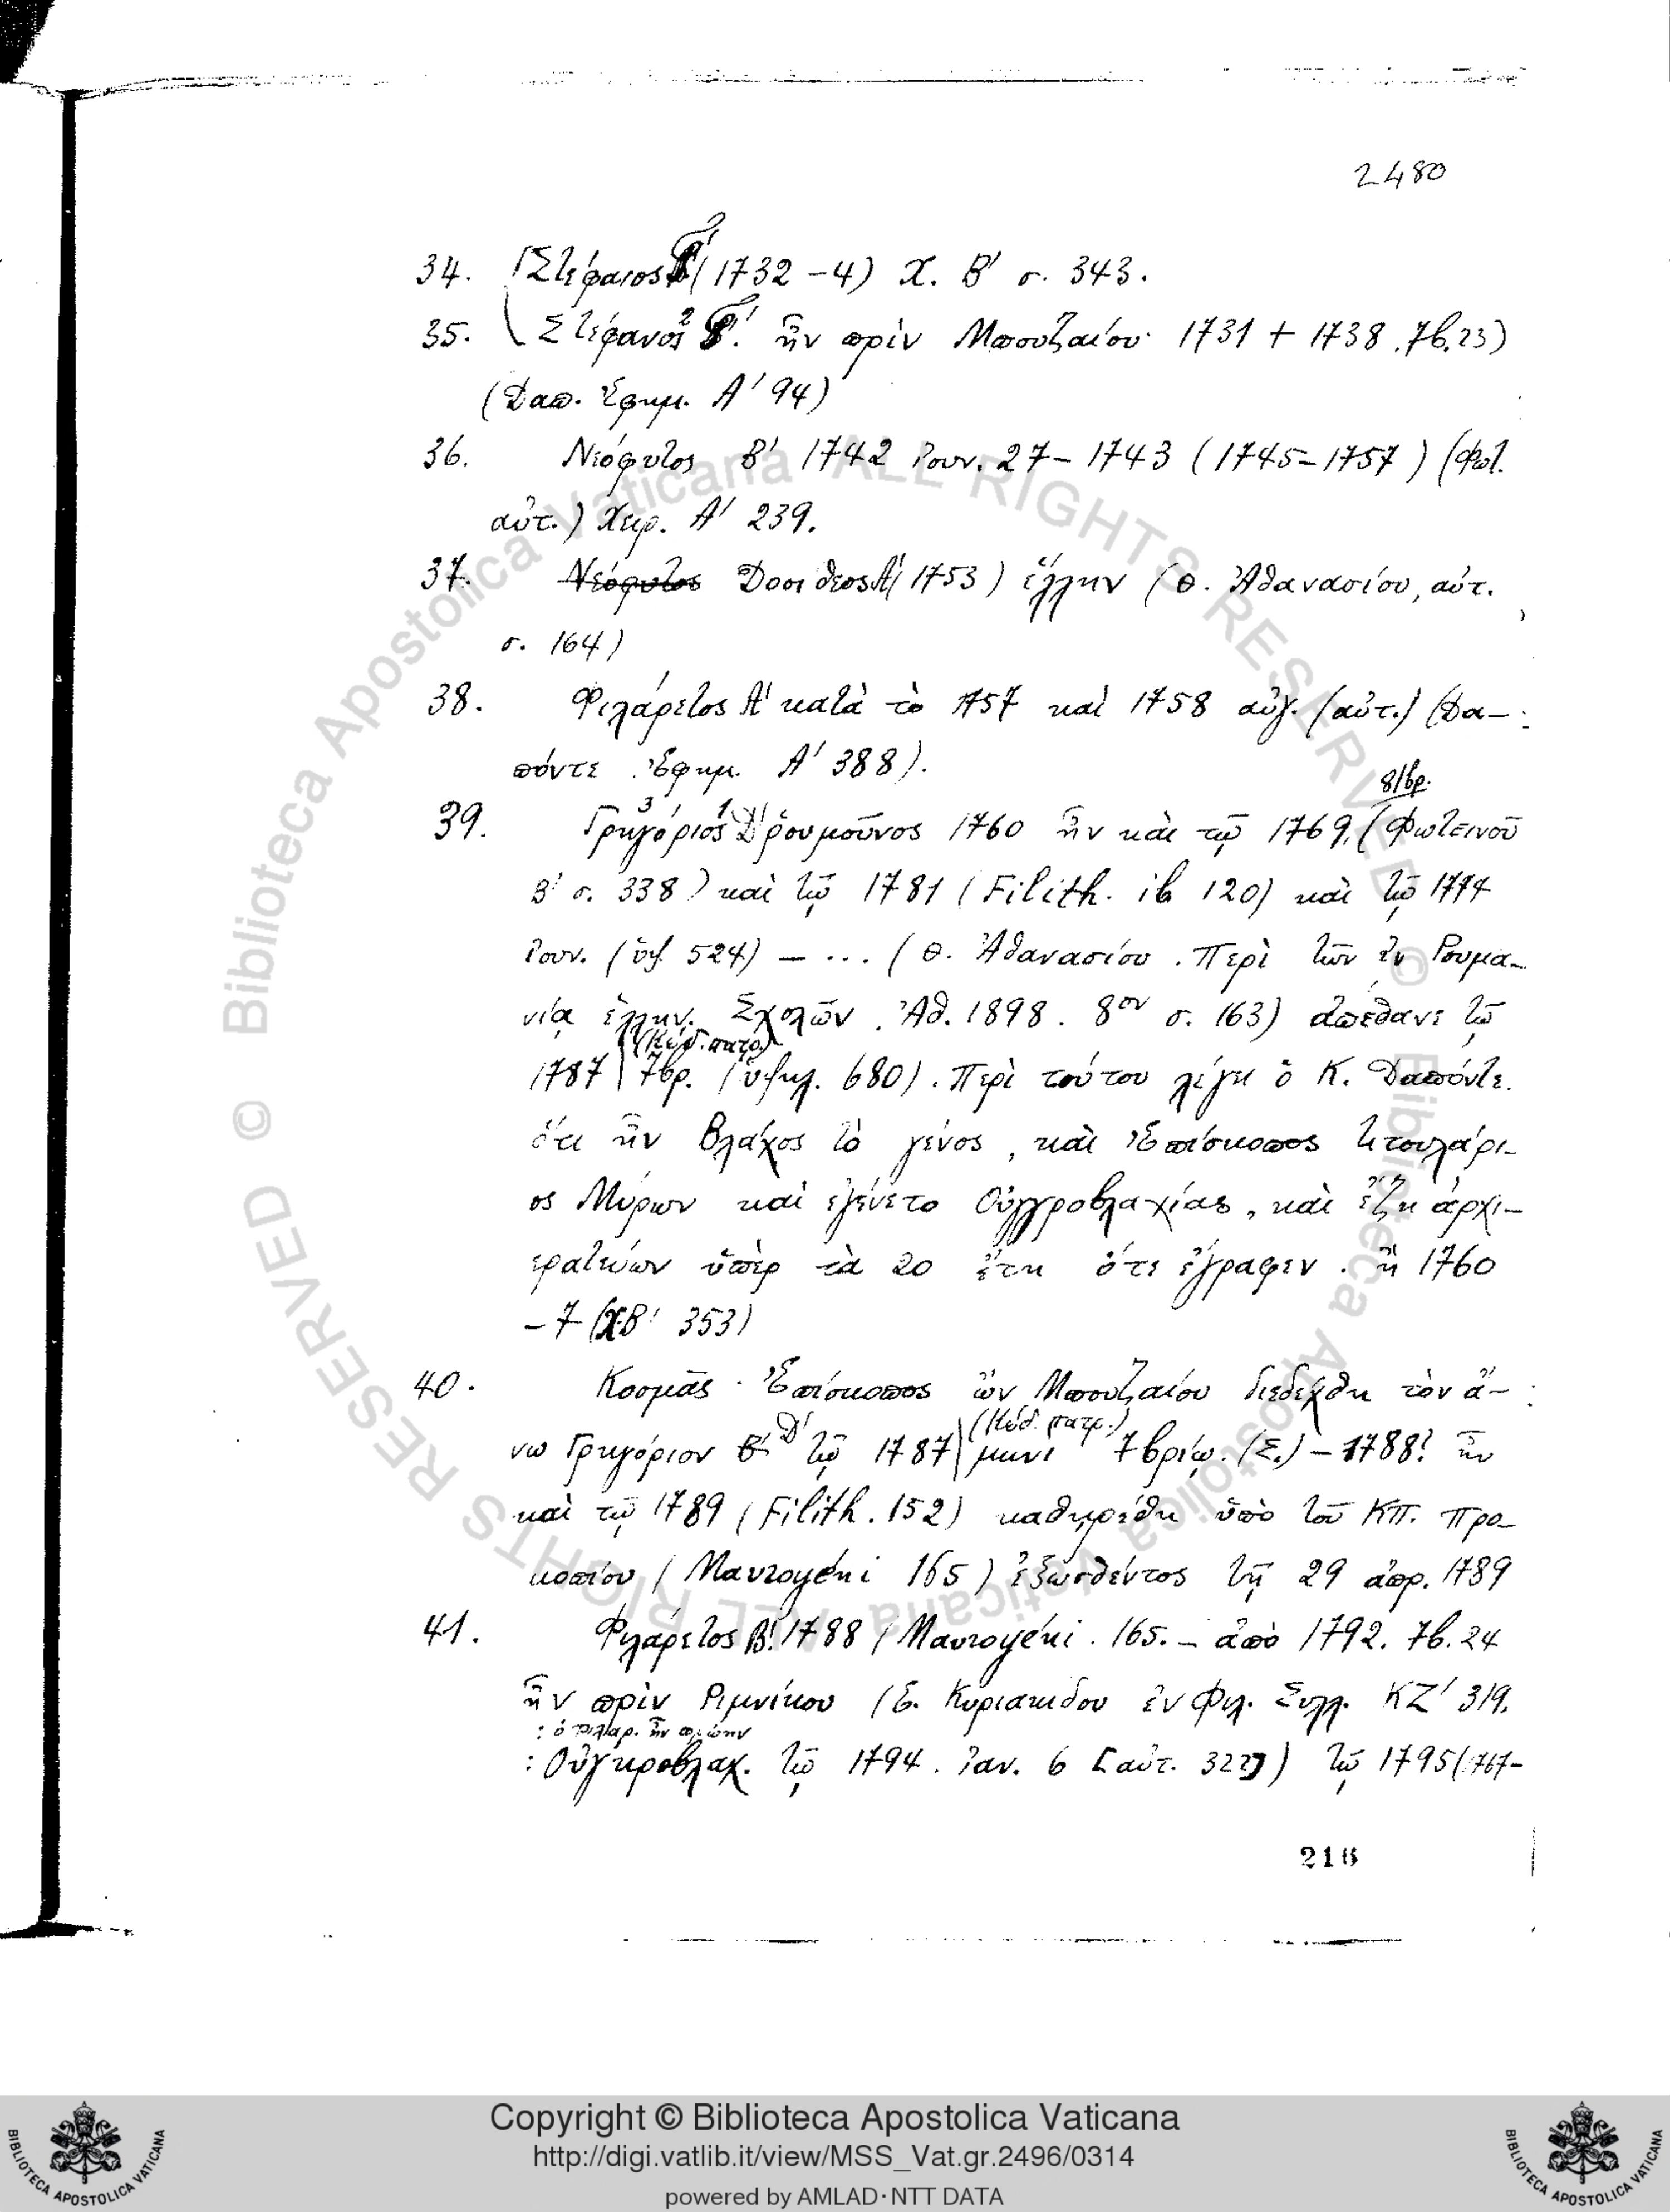 2480
34. Στέφανος Β΄ (1732-4) Χ. Β΄ σ. 343.
35. Στέφανος Β΄. ἦν πρὶν Μπουζαίου 1731 + 1738. 7β. 23)
(Δαπ. Ἐφημ. Α΄ 94)
36. Νεόφυτος Β΄ 1742 Ἰουν. 27 - 1743 (1745-1757) (Φωτ.
αὐτ.) Χειρ. Α΄ 239.
37. Νεόφυτος Δοσίθεος Α΄ (1753) ἕλλην (Θ. Ἀθανασίου, αὐτ.
σ. 164)
38. Φιλάρετος Α΄ κατὰ τὸ 1757 καὶ 1758 αὐγ. (αὐτ.) (Δα-
πόντε Ἐφημ. Α΄ 388).
8/βρ.
39. Γρηγόριος Δ΄ ῥουμοῦνος 1760 ἦν καὶ τῷ 1769, (Φωτεινοῦ
Β΄ σ. 338) καὶ τῷ 1781 (Filith. ib 120) καὶ τῷ 1774
Ἰουν. (ὑψ. 524) - ... (Θ. Ἀθανασίου. Περὶ τῶν ἐν Ρουμα-
νίᾳ ἑλλην. Σχολῶν. Ἀθ. 1898. 8ον σ. 163) ἀπέθανε τῷ
(Κώδ. πατρ.)
1787 7βρ. (ὑψηλ. 680). Περὶ τούτου λέγει ὁ Κ. Δαπόντε.
ὅτι ἦν Βλάχος τὸ γένος, καὶ Ἐπίσκοπος τιτουλάρι-
ος Μύρων καὶ ἐγένετο Οὑγγροβλαχίας, καὶ ἔζη ἀρχι-
ερατεύων ὑπὲρ τὰ 20 ἔτη ὅτε ἔγραφεν. ἢ 1760
-7 (Χ.Β΄ 353)
40. Κοσμᾶς. Ἐπίσκοπος ὢν Μπουζαίου διεδέχθη τὸν ἄ-
(Κώδ. πατρ.)
νω Γρηγόριον Β΄ Δ΄ τῷ 1787 μηνὶ 7βρίῳ. (Σ.) - 1788! ἦν
καὶ τῷ 1789 (Filith. 152) καθῃρέθη ὑπὸ τοῦ ΚΠ. Προ-
κοπίου (Mavroyéni 165) ἐξωσθέντος τῇ 29 ἀπρ. 1789
41. Φιλάρετος Β΄. 1788 (Mavroyéni. 165. - ἀπὸ 1792. 7β. 24
ἦν πρὶν Ριμνίκου (Ε. Κυριακίδου ἐν Φιλ. Συλλ. ΚΖ΄ 319.
: ὁ Φιλαρ. ἦν πρώην
: Οὑγκροβλαχ. τῷ 1794. Ἰαν. 6 [αὐτ. 322]) τῷ 1795 (767-
216
© Biblioteca Apostolica Vaticana ALL RIGHTS RESERVED
Copyright © Biblioteca Apostolica Vaticana
http://digi.vatlib.it/view/MSS_Vat.gr.2496/0314
powered by AMLAD·NTT DATA
BIBLIOTECA APOSTOLICA VATICANA
BIBLIOTECA APOSTOLICA VATICANA